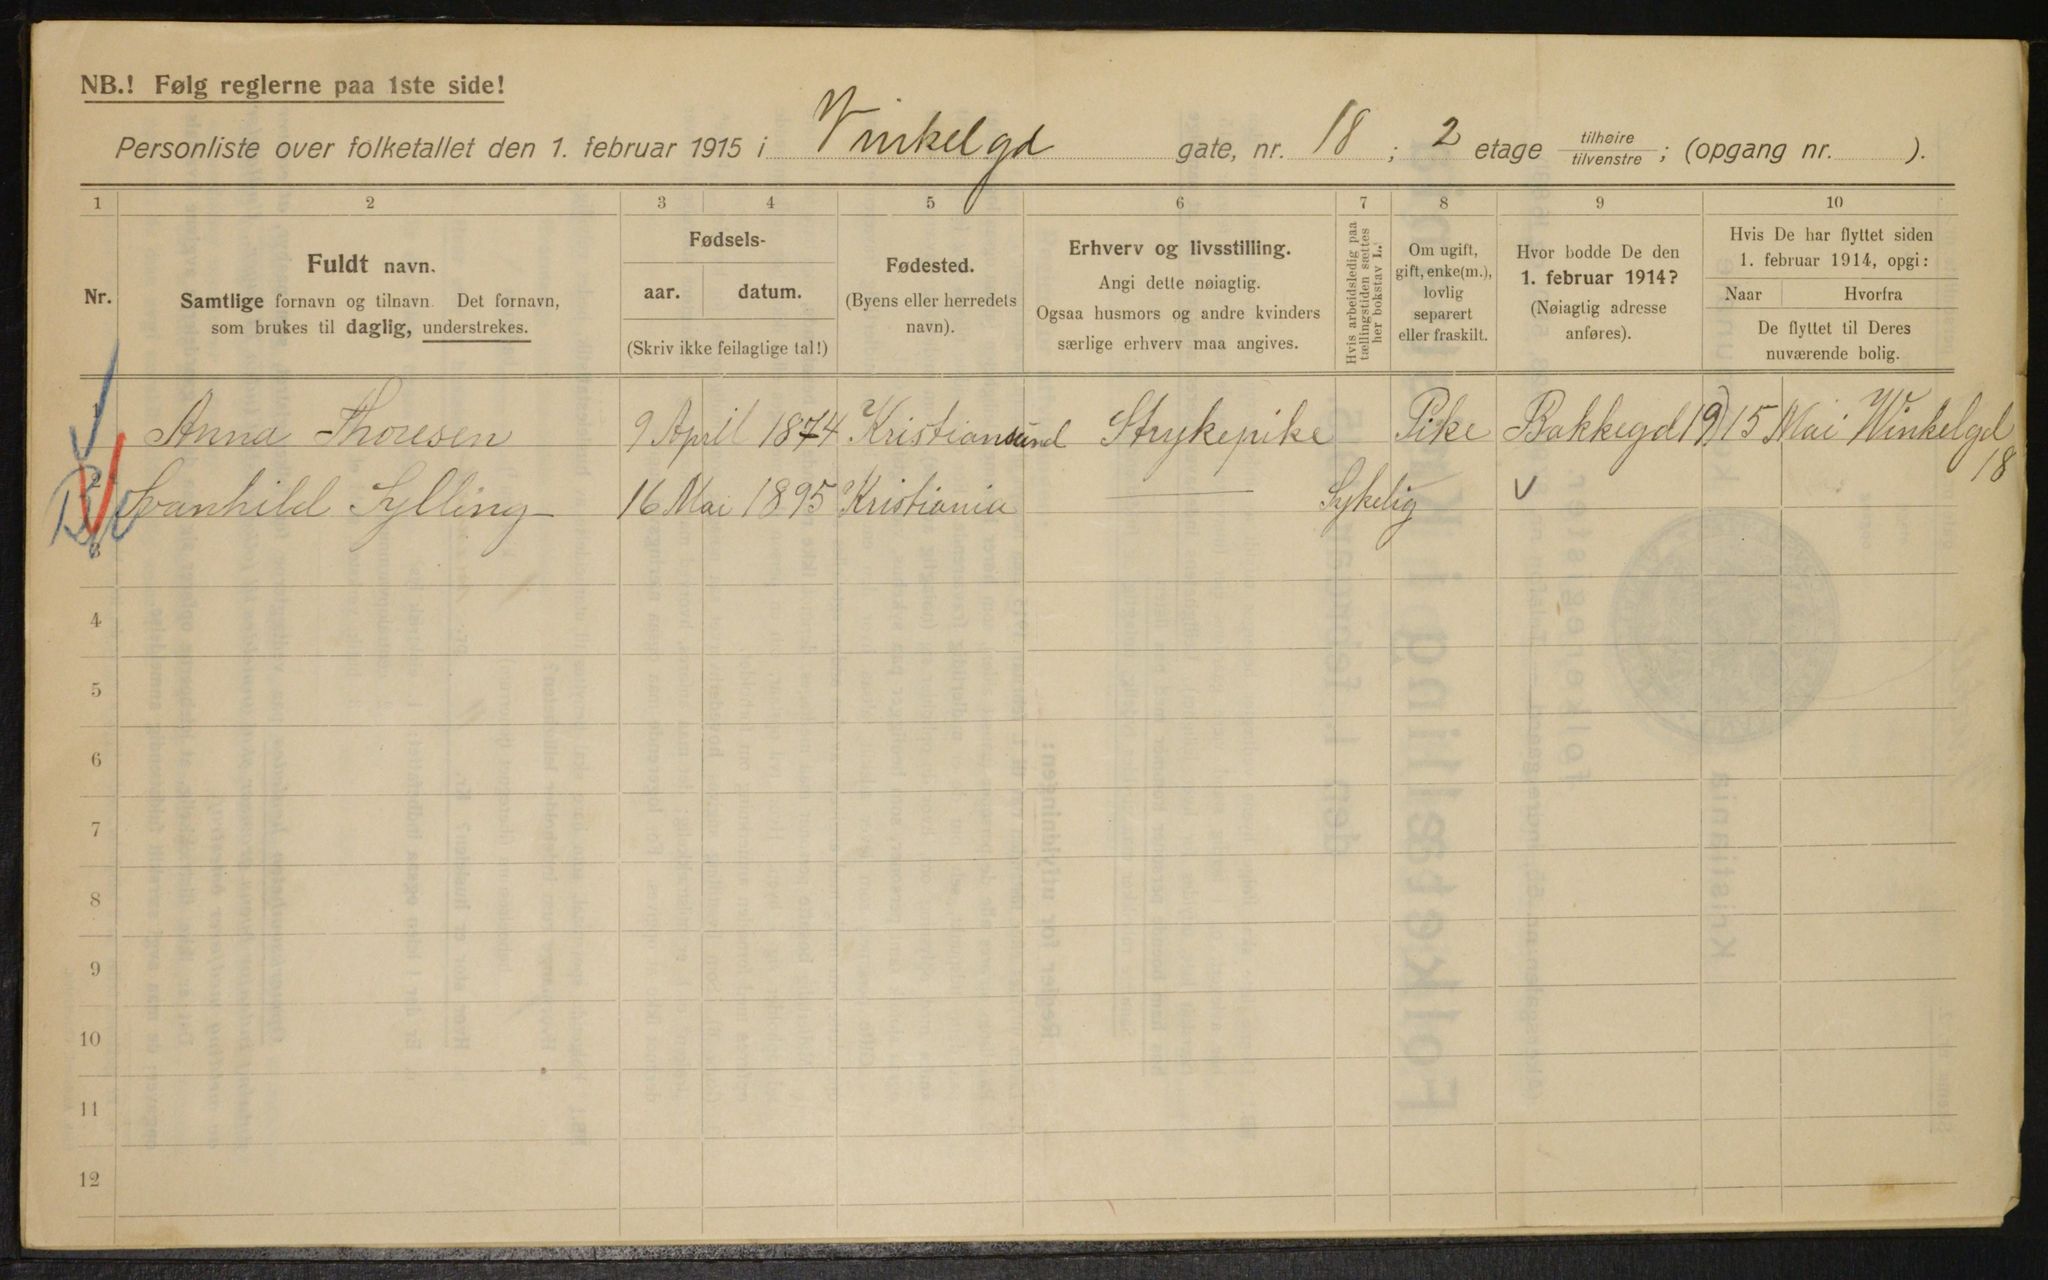 NB.! Følg reglerne paa 1ste side!
Personliste over folketallet den 1. februar 1915 i Vinkelgd gate, nr. 18 ; 2 etage tilhøire/tilvenstre ; (opgang nr. ).
1 2 3 4 5 6 7 8 9 10
Nr.
Fuldt navn.
Samtlige fornavn og tilnavn. Det fornavn,
som brukes til daglig, understrekes.
Fødsels-
aar. datum.
(Skriv ikke feilagtige tal!)
Fødested.
(Byens eller herredets
navn).
Erhverv og livsstilling.
Angi dette nøiagtig.
Ogsaa husmors og andre kvinders
særlige erhverv maa angives.
Hvis arbeidsledig paa
tællingstiden sættes
her bokstav L.
Om ugift,
gift, enke(m.),
lovlig
separert
eller fraskilt.
Hvor bodde De den
1. februar 1914?
(Nøiagtig adresse
anføres).
Hvis De har flyttet siden
1. februar 1914, opgi:
Naar Hvorfra
De flyttet til Deres
nuværende bolig.
1 Anna Thoresen 9 April 1874 Kristiansund Strykepike Pike Bakkegd 19) 15 Mai Winkelgd
18
2 Svanhild Sylling 16 Mai 1895 Kristiania — Sykelig v
3
4
5
6
7
8
9
10
11
12